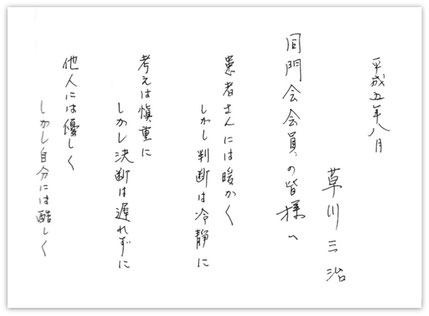 平成五年八月
草川三治
同門会会員の皆様へ
患者さんには暖かく
しかし判断は冷静に
考えは慎重に
しかし決断は遅れずに
他人には優しく
しかし自分には酷しく